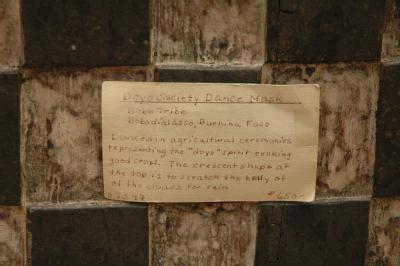 Doyo Society Dance Mask
Bobo Tribe
Bobodialasso, Burkina Faso
Danced in agricultural ceremonies
representing the "doyo" spirit evoking
good crops. The crescent shape at
the top is to scratch the belly of
of the clouds for rain
$650-